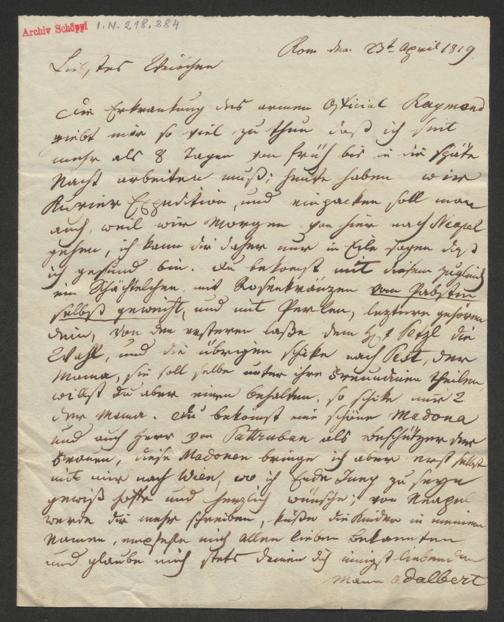 Archiv Schöppl I.N. 218.884
Rom den 23t April 1819
Liebstes Weibchen
Die Erkrankung des armen Official Raymond
giebt mir so viel zu thun daß ich seit
mehr als 8 Tagen von früh bis in die späte
Nacht arbeiten muß; heute haben wir
Kurier Expedition, und einpacken soll man
auch, weil wir Morgen von hier nach Neapel
gehen, ich kann dir daher nur in Eile sagen daß
ich gesund bin. Du bekomst mit diesem zugleich
ein Schächtelchen mit Rosenkränzen vom Pabsten
selbst geweiht, und mit Perlen, leztere gehören
dein, von den ersteren laße dem die
Wahl, und die übrigen schike nach Pest, der
Mama, sie soll selbe unter ihre Freundinen theilen
willst du aber einen behalten, so schike nur 2
der Mama. Du bekomst eine schöne Madona
und auch Herr von als Beschützer der
Frauen, diese Madonen bringe ich aber erst selbst
mit mir nach Wien, wo ich Ende Juny zu seyn
gewiß hoffe und herzlich wünsche; von Neapel
werde dir mehr schreiben, küße die Kinder in meinem
Namen, empfehle mich allen lieben Bekannten
und glaube mich stets deinen dich innigst liebenden
Mann Adalbert